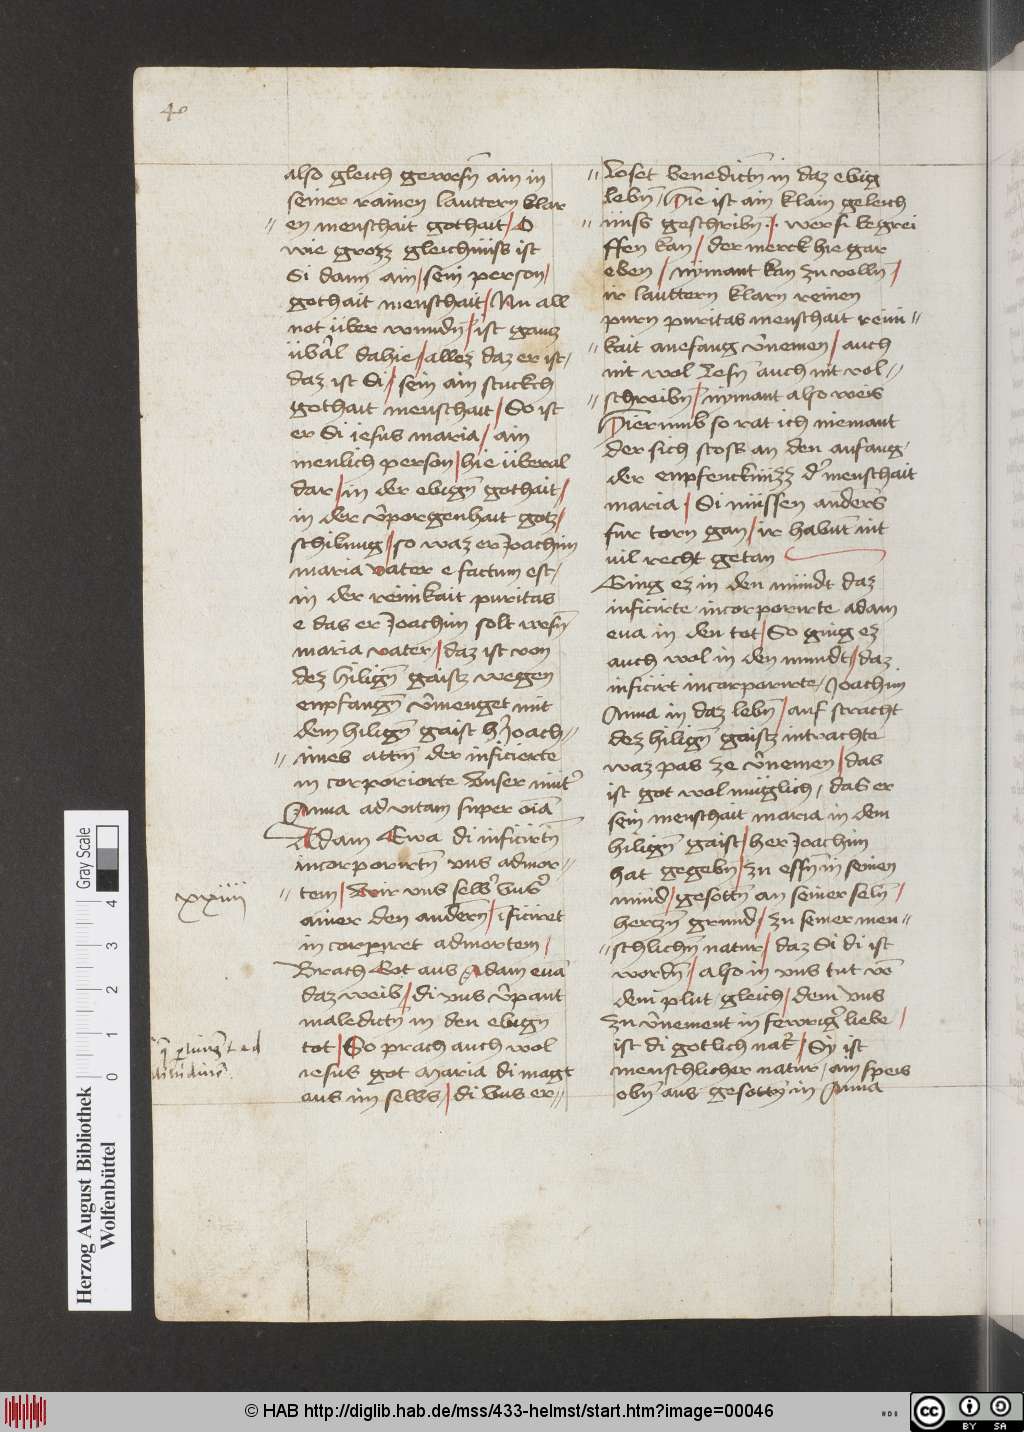 4
also gleich gewesñ ain in
seiner rainen lauttern klar
en menschait gothait / O
wie grozz gleichnüss ist
Si dann ain / sein person /
gothait menschait / Nu all
not über wundñ / ist gancz
dahie / allez daz er ist
daz ist Si / sein ain stuckch
gothait menschait / So ist
er Si iesus maria / ain
menlich person / hie überal
dar / in der ebign̄ gothait /
in der v̂porgenhait gotz /
schikung / so waz er Joachim
maria vater e factum est /
in der reinikait puritas
e das er Joachim solt wesn̄
maria vater / daz ist von
dez hiligñ gaistz wegen
enpfangñ v̂menget mit
dem hiligñ gaist h̓ Joach
imes attm̄ der inficierte
in corporiorte Vnser mut̓
Anna ad vitam super oīa
Adam Ewa di inficirtñ
incorporirtñ vns admor
xxiiii
tem / Wir vns selb̓ vns̓
ainer den andern / ificiret
in corpuret admortem /
Brach Got aus Adam eua
daz weib / di vns v̂pant
maledictñ in den ebign
tot / So prach auch wol
iesus got maria di magt
aus im selbs / di vns er
Loset benedictñ in daz ebig
lebñ / Hie ist ain klain geleich
nuss geschribñ · wer si begrei
ffen kan / der merck hie gar
eben / nymant kan zu vollñ /
ir lauttern klarn reinen
purn puritas menschait reini
kait anefang v̂nemen / auch
nit wol lesn̄ auch nit vol
schreibñ / nymant also weis
Hierumb so rat ich niemant
der sich stoss an den anfang
der enpfencknüzz d̓ menschait
maria / Si müssen anders
fur torn gan / ir habnt nit
uil recht getan
Ging ez in den mündt daz
inficiirte incorporirte adam
eua in den tot / So ging ez
auch wol in den mundt / daz
inficiirt incorporirte / Joachim
Anna in daz lebñ / auf stracht
dez hiligñ gaistz intrachte
waz pas ze v̂nemen / das
ist got wol müglich / das er
sein menschait maria in dem
hiligñ gaist / her Joachim
hat gegebñ / zu essñ in seinen
mund / gesottñ an seiner selñ /
herczñ grund / zu seiner men
schlichñ natur / daz Si di ist
wordñ / also in vns tut vō
dem plut gleich / dem vns
zu v̂nement in fewrig̓ liebe /
ist di gotlich nat̓ / Sy ist
menschlicher natur / ain speis
obñ aus gesottñ in Anna
Gray Scale
0 1 2 3 4
Herzog August Bibliothek
Wolfenbüttel
© HAB http://diglib.hab.de/mss/433-helmst/start.htm?image=00046
cc
BY SA